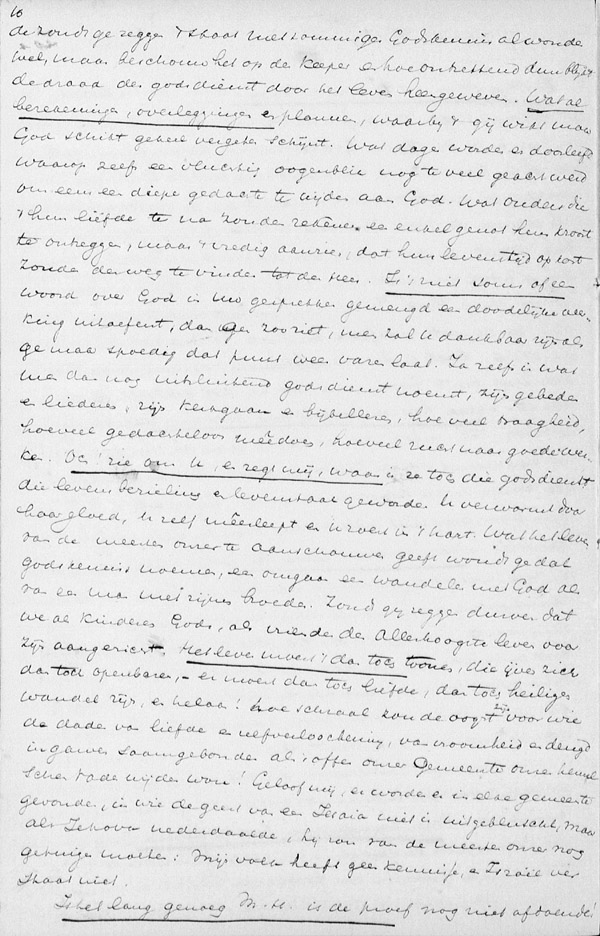 10
de zoudt ge zeggen 't staat met sommiger Godskennis al wonder
wel, maar beschouw het op de keper en hoe ontzettend dun blijkt
de draad der godsdienst door het leven heengeweven. Wat al
berekeningen, overleggingen en plannen, waarbij 't gij wikt maar
God schikt geheel vergeten schijnt. Wat dagen worden er doorleefd
waarop zelfs een vluchtig oogenblik nog te veel geacht werd
om eens een diepe gedachte te wijden aan God. Wat ouders die
't hun liefde te na zouden rekenen een enkel genot hun kroost
te ontzeggen, maar 't vredig aanzien, dat hun levenstijd opkort
zonde den weg te vinden tot den Heer. Is 't niet soms of een
woord over God in uw gesprekken gemengd een doodelijke wer-
king uitoefent, dan ge zoo ziet, men zal u dankbaar zijn als
ge maar spoedig dat punt weer varen laat. Ja zelfs in wat
men dan nog uitsluitend godsdienst noemt, zijn gebeden
en liederen, zijn kerkgaan en bijbellezen, hoe veel traagheid,
hoeveel gedachteloos meêdoen, hoeveel zucht naar goede wer-
ken. Och! zie om u, en zegt mij, waar is ze toch die godsdienst
die levensbezieling en levenstaal geworden u verwarmt door
haar gloed, u zelf meêsleept en u roert in 't hart. Wat het leven
van de meesten onzer te aanschouwen geeft wordt ge dat
godskennis noemen, een omgaan een wandelen met God als
van een man met zijnen broeder. Zoudt gij zeggen durven dat
we al kinderen Gods, als vrienden des Allerhoogste leven voor
Zijn aangezicht. Het leven moest 't dan toch toonen, die ijver zich
dan toch openbaren, – er moest dan toch liefde, dan toch heiliger
wandel zijn, en helaas! hoe schraal zou de oogst zijn voor wie
de daden van liefde en zelfverloochening, van vroomheid en deugd
in garven saamgebonden als 't offer onzer Gemeente onzen hemel
schen Vader wijden wou! Geloof mij, er worden er in elke gemeente
gevonden, in wie de geest van een Jesaia niet is uitgebluscht, maar
als Jehova nederdaalde, hij zou van de meesten onzer nog
getuigen moeten: Mijn volk heeft geen kennisse, en Israël ver
staat niet.
Is het lang genoeg M. H. is de proef nog niet afdoende!